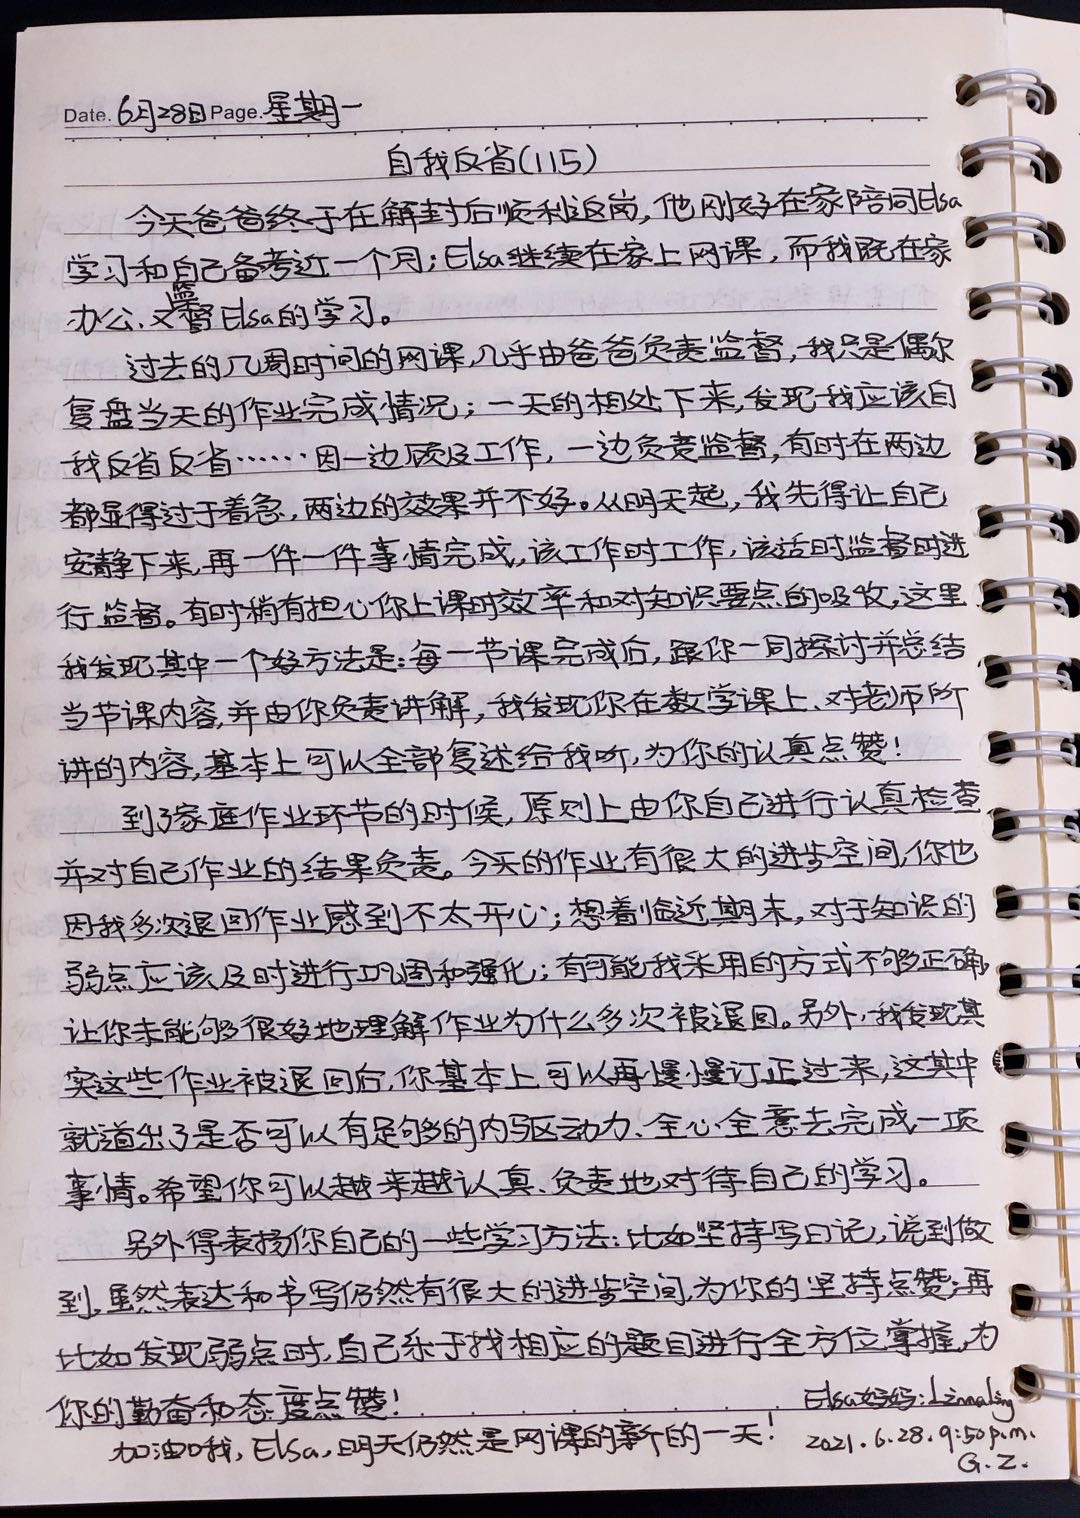 Date. 6月28日 Page. 星期一
自我反省(115)
今天爸爸终于在解封后顺利返岗，他刚好在家陪同Elsa
学习和自己备考近一个月；Elsa继续在家上网课，而我既在家
办公、又监督Elsa的学习。
过去的几周时间的网课，几乎由爸爸负责监督，我只是偶尔
复盘当天的作业完成情况；一天的相处下来，发现我应该自
我反省反省……因一边顾及工作，一边负责监督，有时在两边
都显得过于着急，两边的效果并不好。从明天起，我先得让自己
安静下来，再一件一件事情完成，该工作时工作，该适时监督时进
行监督。有时稍有担心你上课时效率和对知识要点的吸收，这里
我发现其中一个好方法是：每一节课完成后，跟你一同探讨并总结
当节课内容，并由你负责讲解，我发现你在数学课上、对老师所
讲的内容，基本上可以全部复述给我听，为你的认真点赞！
到了家庭作业环节的时候，原则上由你自己进行认真检查，
并对自己作业的结果负责。今天的作业有很大的进步空间，你也
因我多次退回作业感到不太开心；想着临近期末，对于知识的
弱点应该及时进行巩固和强化；有可能我采用的方式不够正确，
让你未能够很好地理解作业为什么多次被退回。另外，我发现其
实这些作业被退回后，你基本上可以再慢慢订正过来，这其中
就道出了是否可以有足够的内驱动力、全心全意去完成一项
事情。希望你可以越来越认真、负责地对待自己的学习。
另外得表扬你自己的一些学习方法：比如坚持写日记，说到做
到，虽然表达和书写仍然有很大的进步空间，为你的坚持点赞；再
比如发现弱点时，自己乐于找相应的题目进行全方位掌握，为
你的勤奋和态度点赞！
Elsa妈妈：Linnaling
加油哦，Elsa，明天仍然是网课的新的一天！
2021.6.28.9:50p.m.
G.Z.